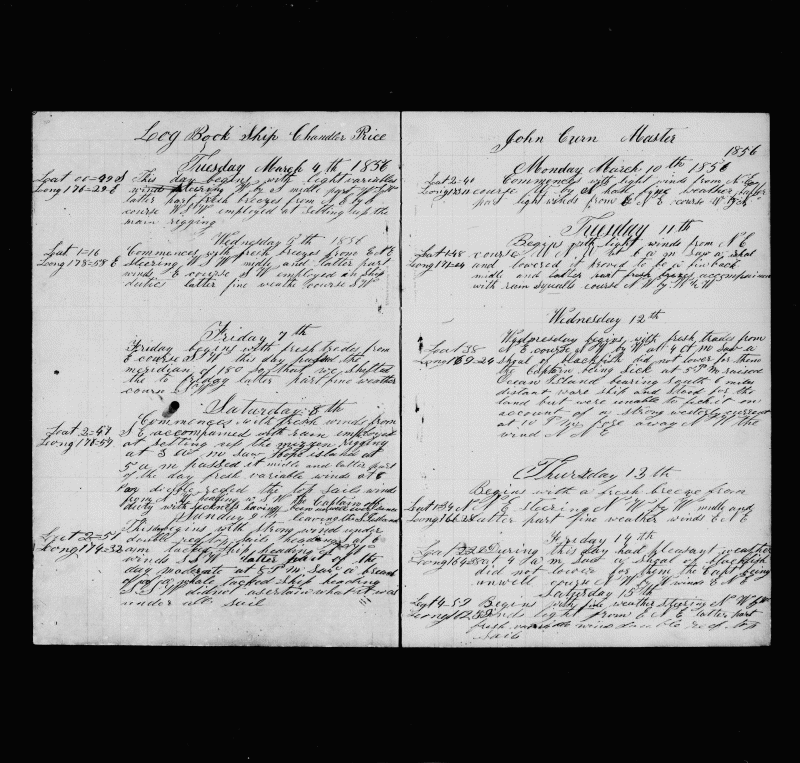 Log Book Ship Chandler Price
Tuesday March 4th 1856
Lat 00=49 S This day begins with light variable
Long 176=29 E winds steering W by S midl part
latter part fresh breezes from N E by E
course W S W employed at setting up the
main rigging
Wednesday 5th 1856
Lat 1=16 Commences with fresh breezes from E N E
Long 178=58 E steering W S W midle and latter part
winds E course S W employed on ship
duties latter fine weathe course S W
Friday 7th
Friday begins with fresh trades from
E course S W this day passed the
meridian of 180 so that we shifted
the to friday latter part fine weather
course
Saturday 8th
Commences with fresh winds from
Lat 2=57 S E accompanied with rain employed
Long 178=57 at setting up the mizzen rigging
at 3 saw hope island at
5 a m passed it midle and latter part
of the day fresh variable winds at 6
reefed the top sails winds
from the Captain off
duty with sickness having been unwell ever since
Sunday 9th leaving the
This begins with strong winds under
Lat 2=51 double reefed top sails heading at 6
Long 174=32 am tacked ship heading
winds S S W latter part of the
day moderate at 5 P M saw a breach
of a whale tacked ship heading
S S W did not asertain what it was
under all sail
John Crrn Master
1856
Monday March 10th 1856
Lat 2=40 Commences with light winds from N E
Long course W by N had fine weather latter
part light winds from E N E course W by N
Tuesday 11th
Begins with light winds from N E
Lat 1=48 course W N W at 6 a m saw a whale
Long 171=04 and lowered it proved to be a finback
midle and latter part fresh breezes accompanied
with rain squalls course N W by W & W
Wednesday 12th
Wednesday begins with fresh trades from
Lat 38 N E course W by N at 9 A m saw a
Long 169=24 shoal of blackfish did not lower for them
the Captain being sick at 5 P m raised
Ocean Island bearing south 6 miles
distant ware ship and stood for the
land but were unable to fetch it on
account of a strong westerly current
at 10 P M kept away N W the
wind N N E
Thursday 13th
Begins with a fresh breeze from
Lat 1=34 N N E steering N W by W midle and
Long 166=28 latter part fine weather winds E N E
Friday 14th
Lat During this day had pleasant weather
Long 164=58 at 4 a m saw a shoal of blackfish
did not lower for them the Capt being
unwell course N W by W winds E N E
Saturday 15th
Lat 4=59 Begins with fine weather steering N W by W
Long winds light from E N E latter part
fresh variable winds double reef top
sails